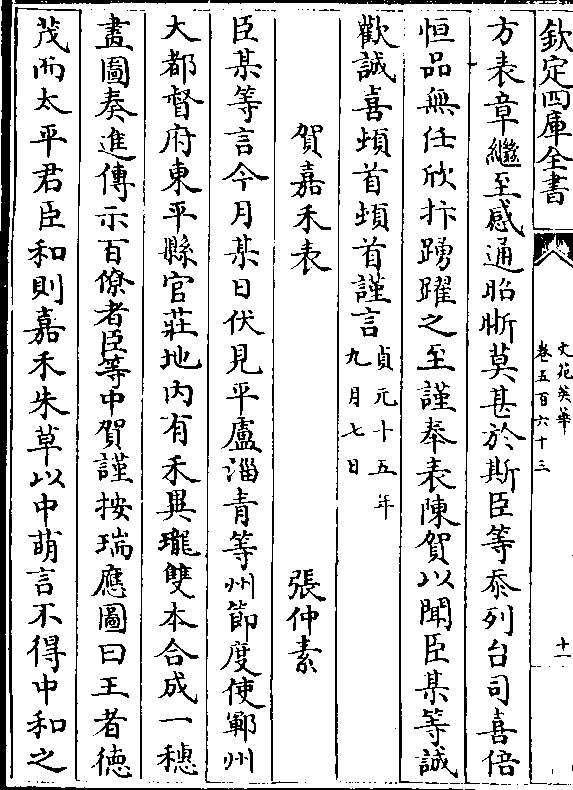 欽定四庫全書
文苑英華
卷五百六十三
十一
方表章繼至感通昭晰莫甚於斯臣等忝列台司喜倍
恒品無任欣抃踴躍之至謹奉表陳賀以聞臣某等誠
歡誠喜頓首頓首謹言貞元十五年
九月七日
賀嘉禾表 張仲素
臣某等言今月某日伏見平盧淄青等州節度使鄆州
大都督府東平縣官莊地内有禾異壠雙本合成一穗
畫圖奏進傳示百僚者臣等中賀謹按瑞應圖曰王者徳
茂而太平君臣和則嘉禾朱草以中萌言不得中和之